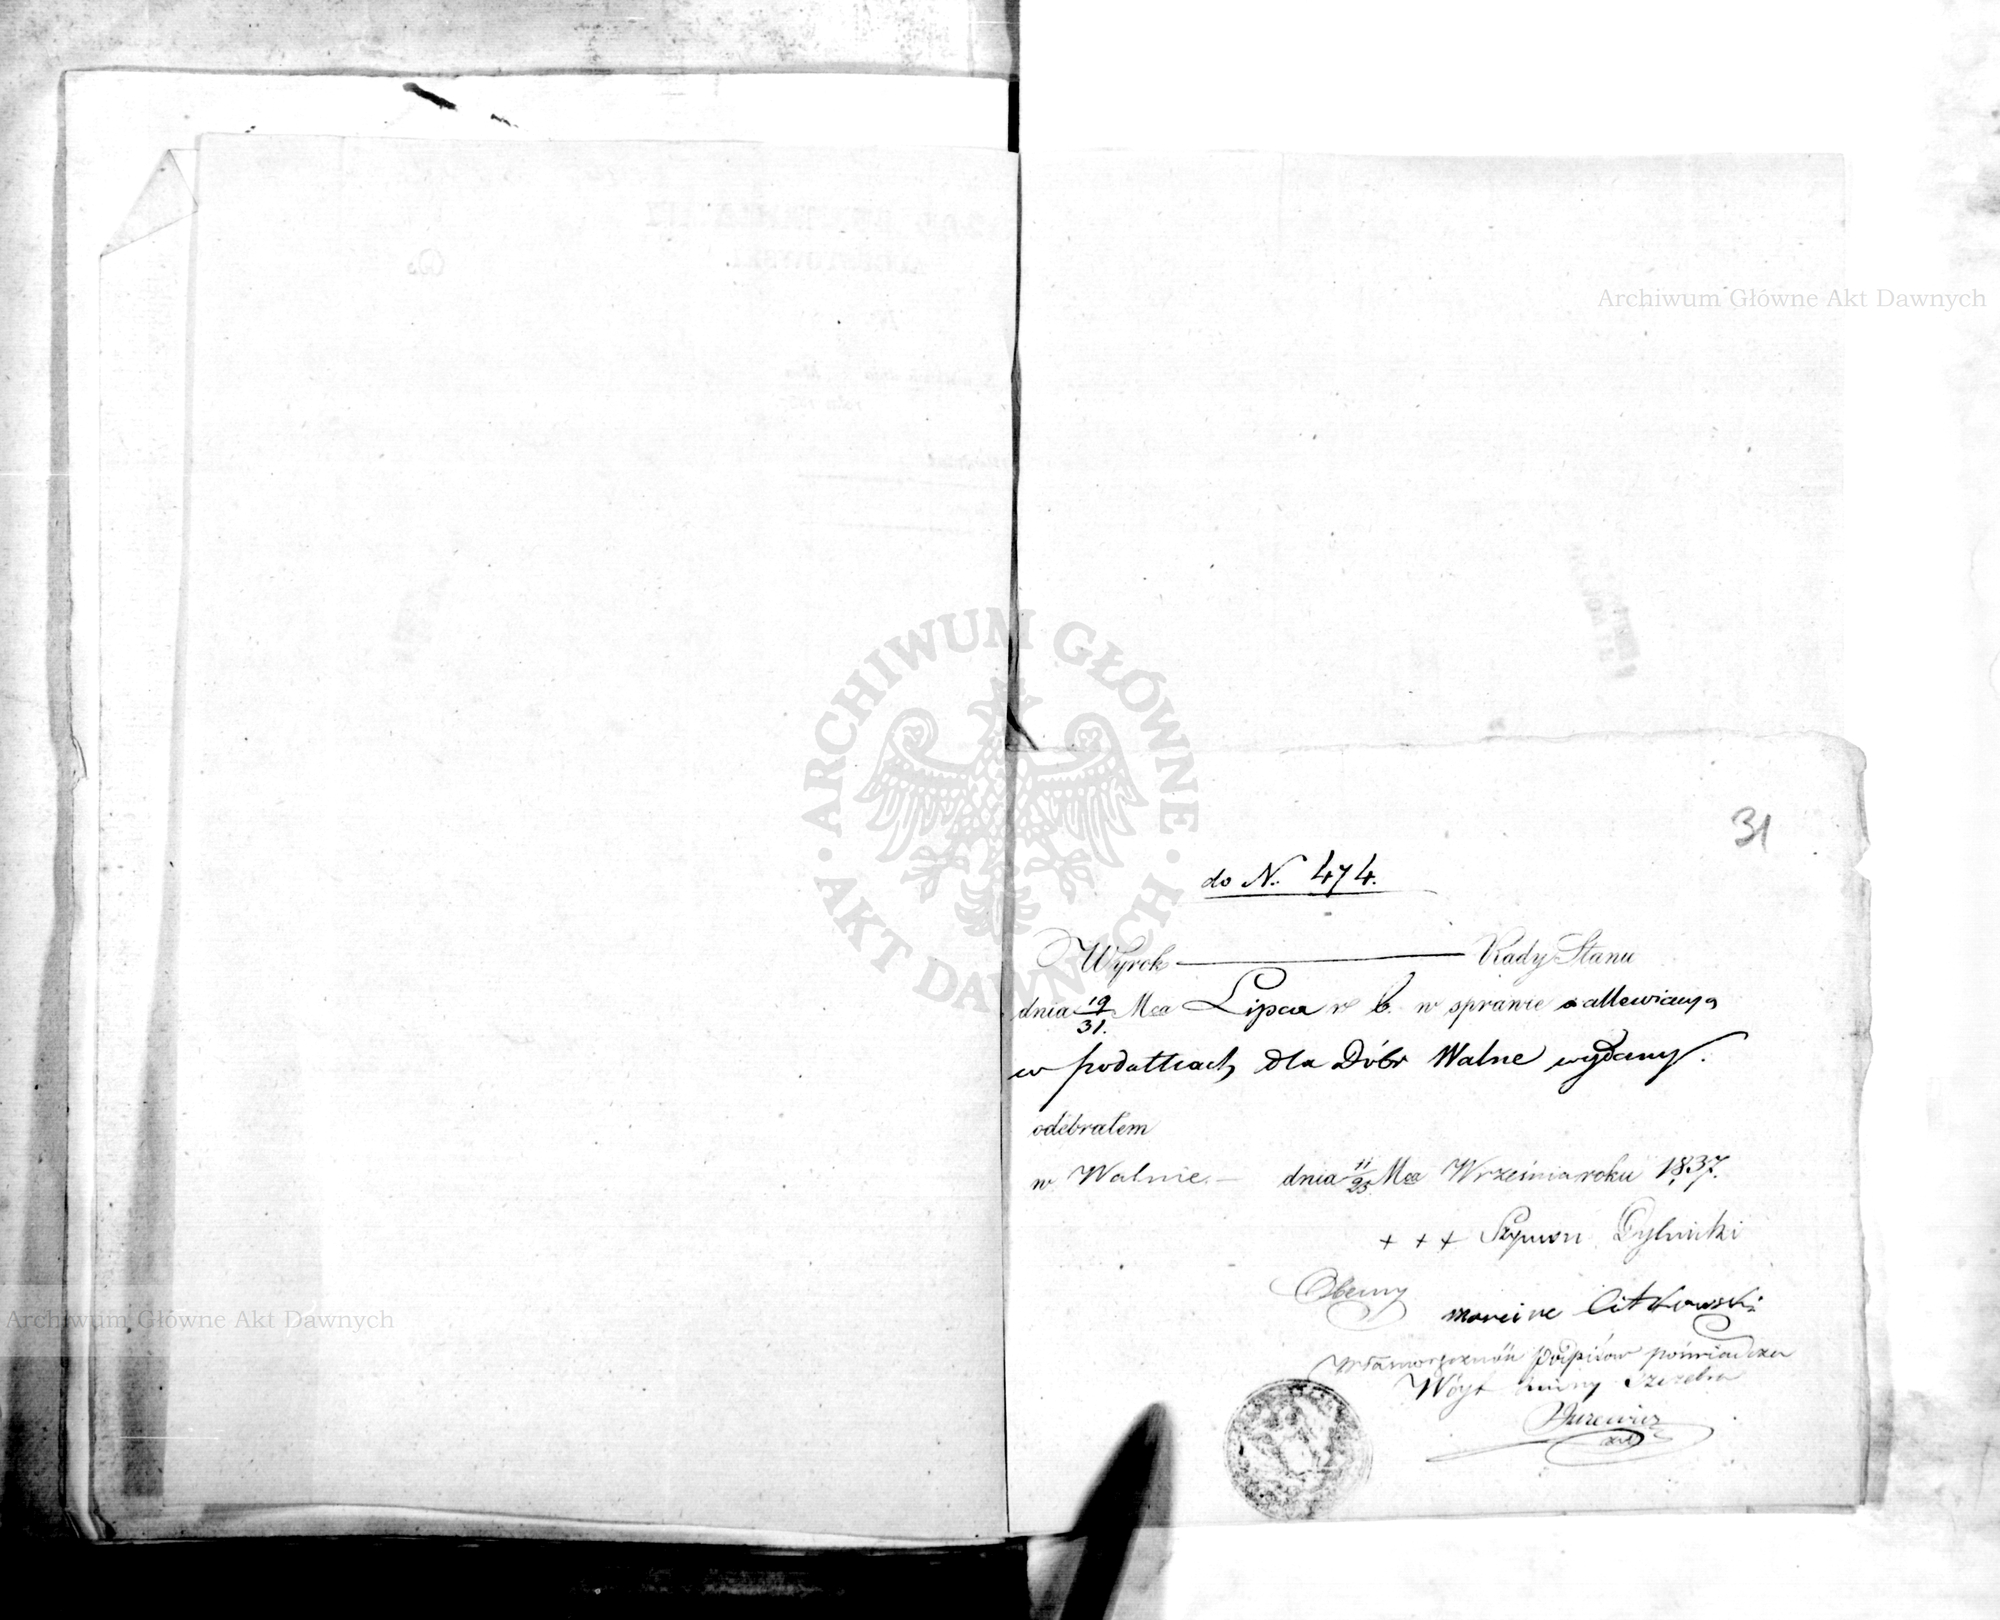 Archiwum Główne Akt Dawnych
ARCHIWUM GŁÓWNE AKT DAWNYCH
31
do N. 474.
Wyrok — Rady Stanu
dnia 19/31. Mca Lipca r b. w sprawie
w podatkach dla Dóbr Walne wydany.
odebrałem
w Walnie — dnia 11/23 Mca Września roku 1837.
+ + + Szymon
Obecny
Litkowski
podpisów poświadcza
Wóyt Gminy Szczebra
Archiwum Główne Akt Dawnych